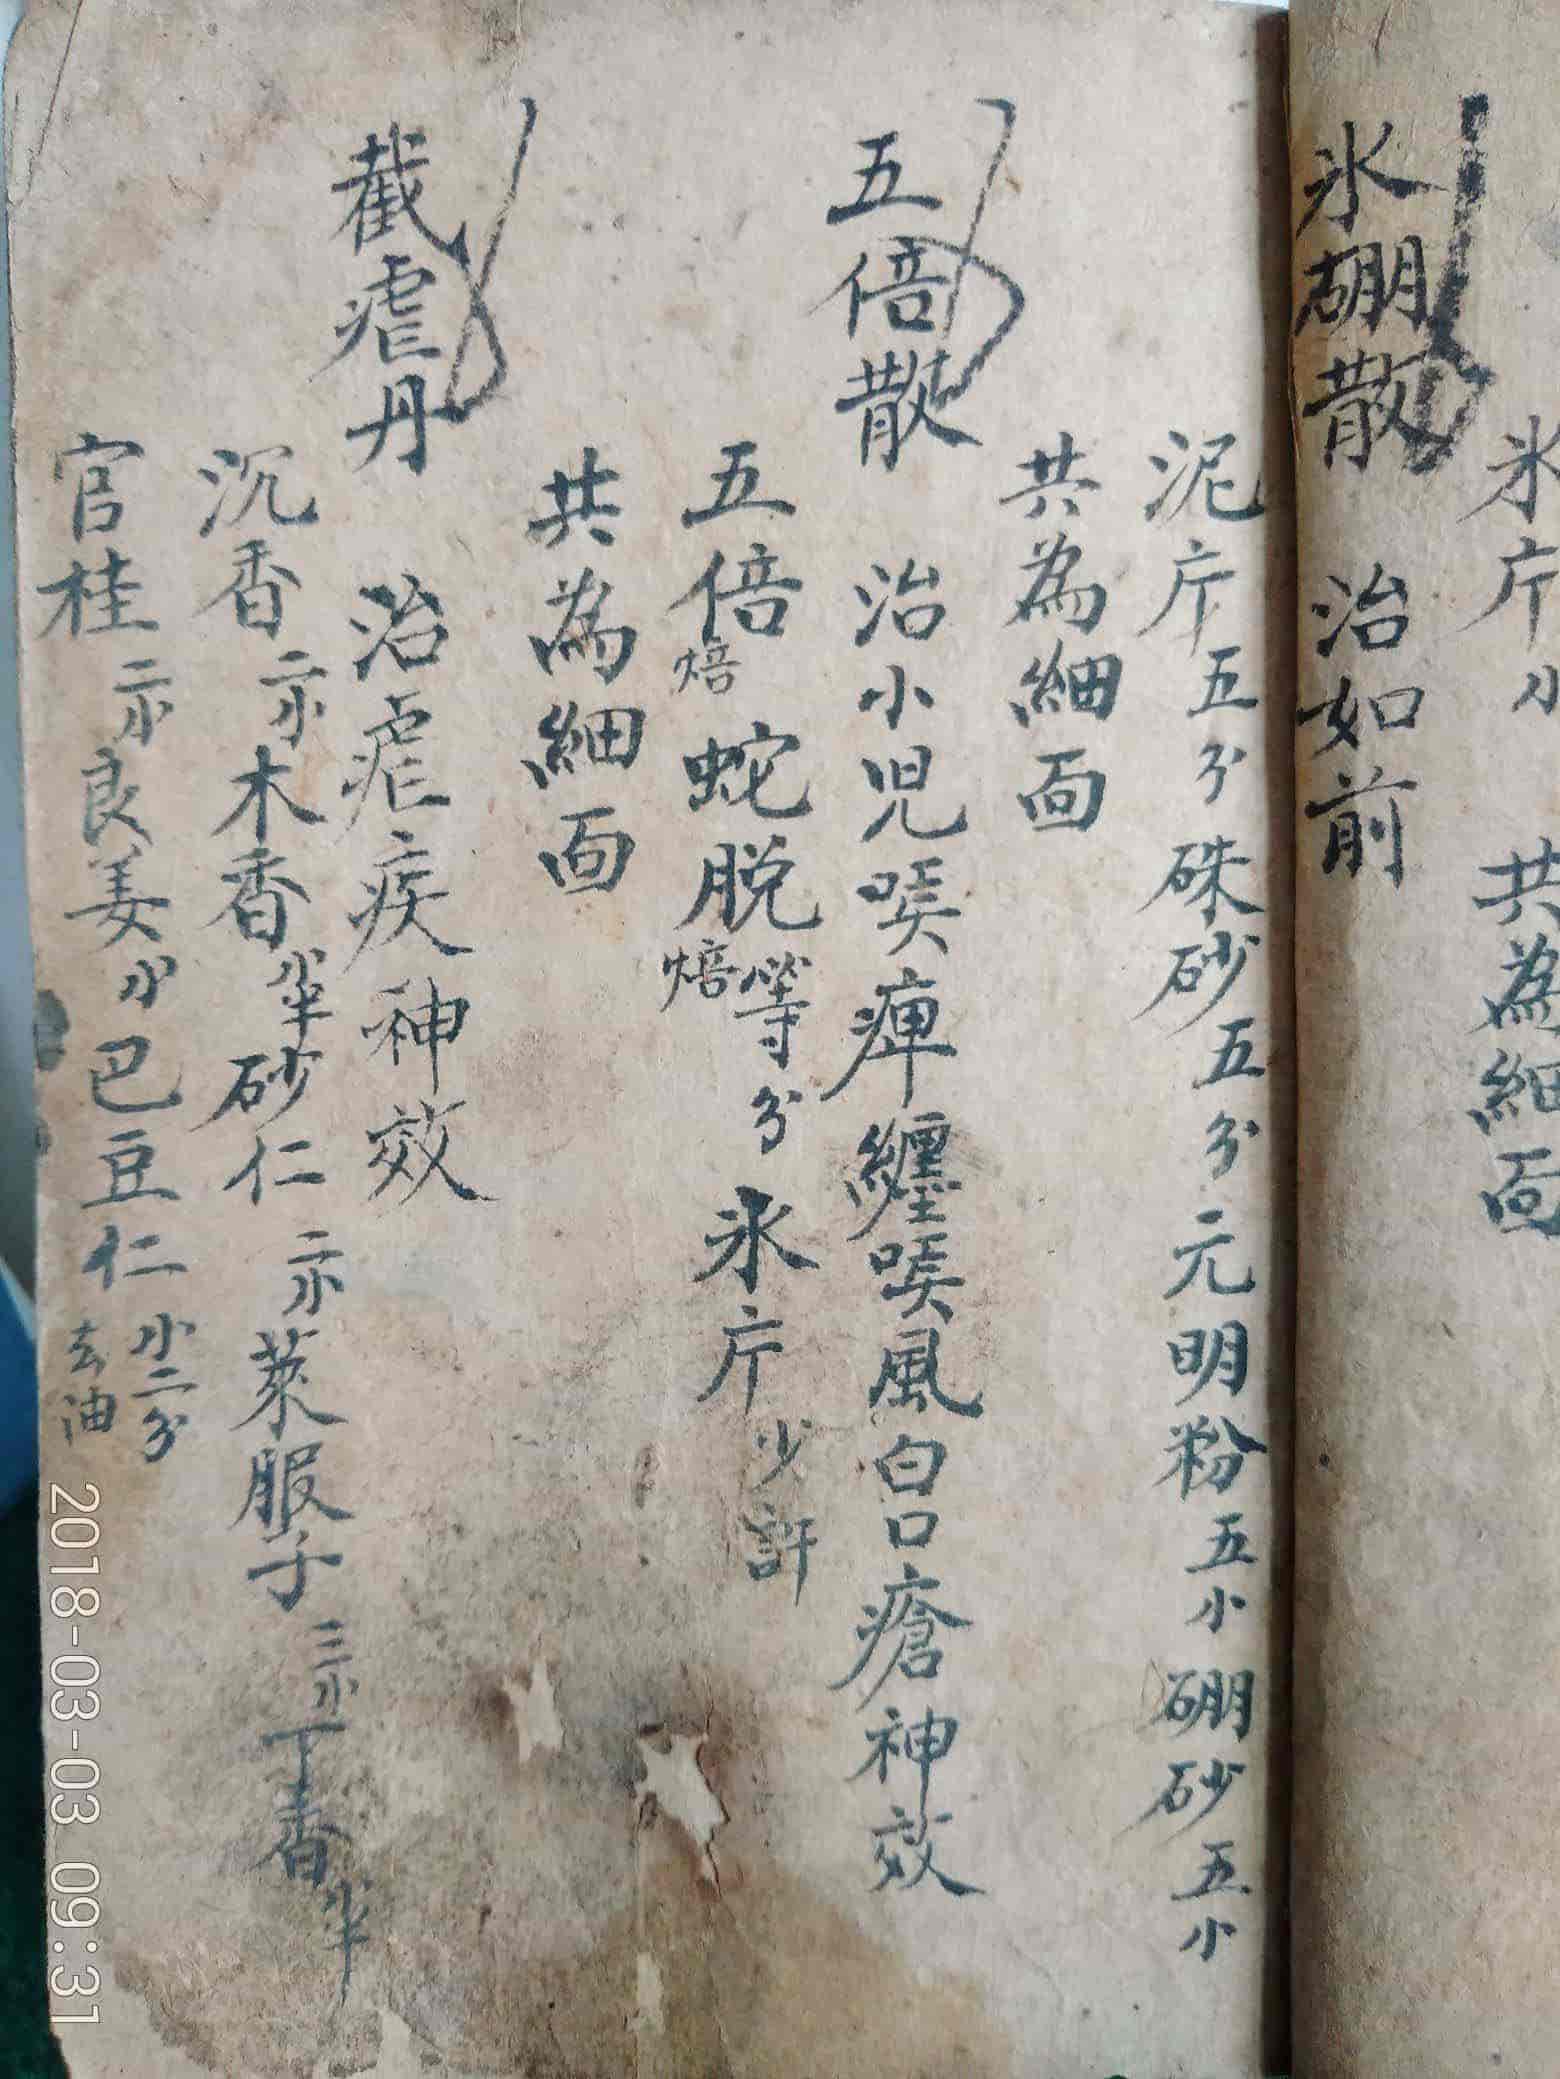 氷片小 共為細面
氷硼散 治如前
泥片五分 硃砂五分 元明粉五小 硼砂五小
共為細面
五倍散 治小児㗋痺纏㗋風白口瘡神效
五倍焙 蛇脱焙 等分 氷片少許
共為細面
截瘧丹 治瘧疾神效
沉香二小 木香小半 砂仁二小 萊服子三小 丁香小半
官桂二小 良姜小 巴豆仁小二分去油
2018-03-03 09:31